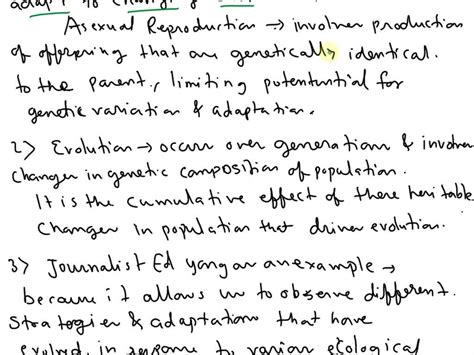 adapt to changing
Asexual Reproduction → involves production
of offspring that are genetically identical.
to the parent, limiting potentuntial for
genetic variation & adaptation.
2) Evolution → occurs over generations & involves
changes in genetic composition of population.
It is the cumulative effect of these heritable
changes in population that drives evolution.
3) Journalist Ed yang an example →
because it allows us to observe different
Stratogies & adaptations that have
evolved in response to various ecological